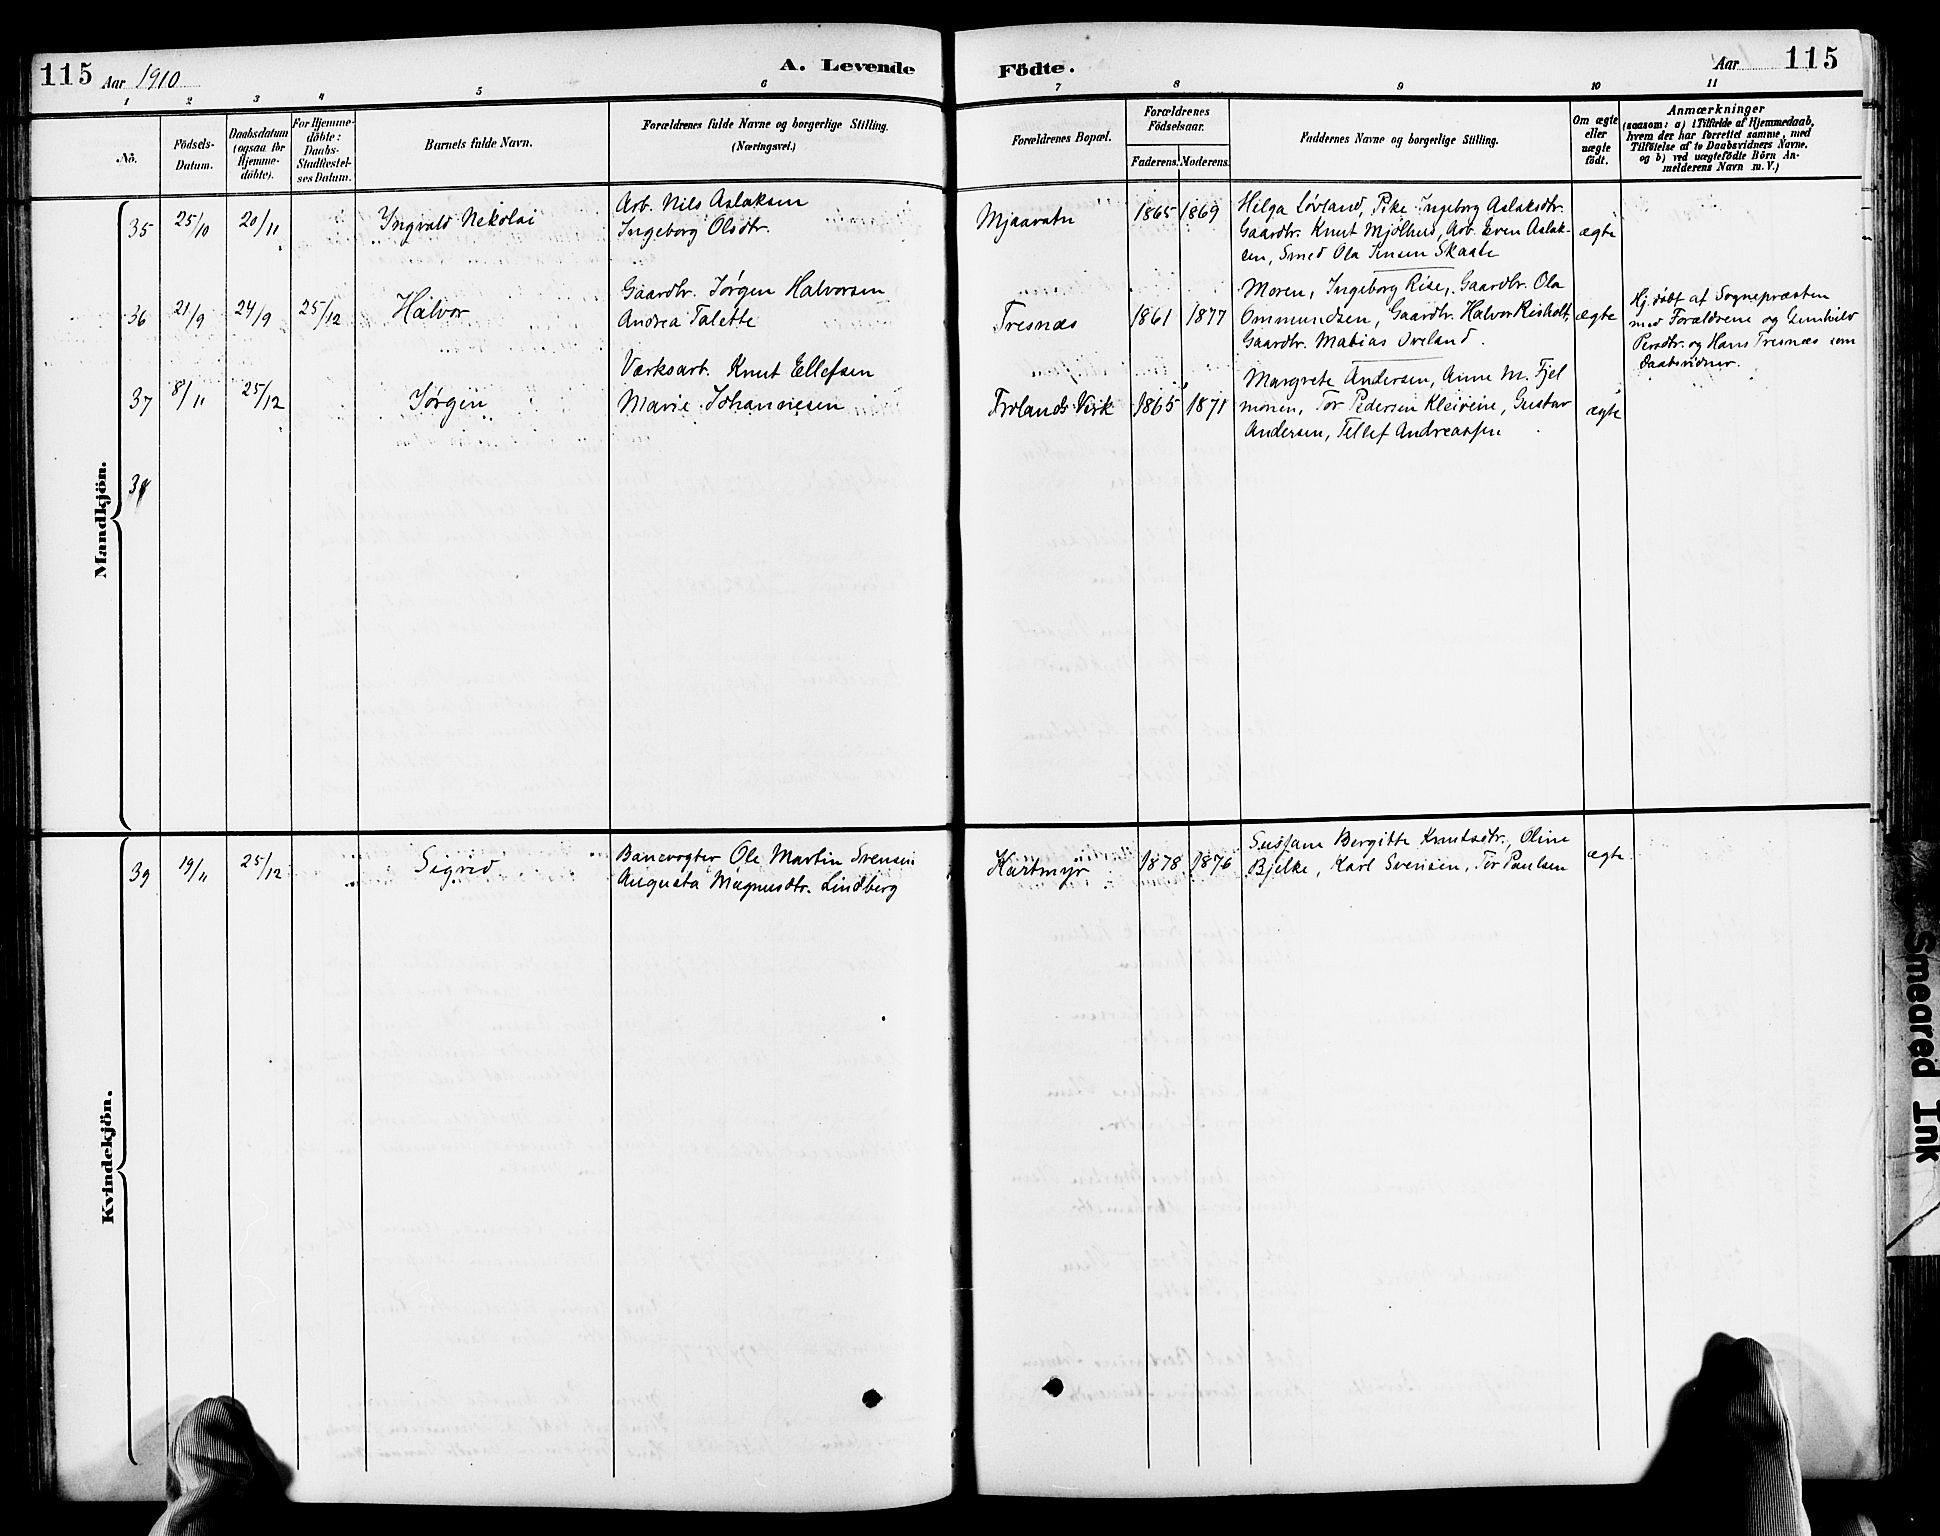 115 Aar 1910 A. Levende Födte. Aar 115
1 2 3 4 5 6 7 8 9 10 11
No.
Födsels-
Datum.
Daabsdatum
(ogsaa for
Hjemme-
döbte).
For Hjemme-
döbte:
Daabs-
Stadfæstel-
ses Datum.
Barnets fulde Navn.
Forældrenes fulde Navne og borgerlige Stilling.
(Næringsvei.)
Forældrenes Bopæl.
Forældrenes
Födselsaar.
Faderens. Moderens.
Faddernes Navne og borgerlige Stilling.
Om ægte
eller
uægte
født.
Anmærkninger
(saasom: a) i Tilfælde af Hjemmedaab,
hvem der har forrettet samme, med
Tilföielse af to Daabsvidners Navne,
og b) ved uægtefödte Börn An-
melderens Navn m. V.)
Mandkjön.
35 25/10 20/11 Yngvald Nekolai
Arb. Nils Aslaksen
Ingeborg Olsdtr.
Mjaavatn 1865 1869
Helga Løvland, Pike Ingeborg Aslaksdtr.
Gaardbr. Knut Mjølhus, Arb. Even Aslak-
sen, Smed Ola Jensen Skaate
ægte
36 21/9 24/9 25/12 Halvor
Gaardbr. Jørgen Halvorsen
Andrea Talette
Tresnæs 1861 1877
Moren, Ingeborg Rise, Gaardbr. Ola
Ommundsen, Gaardbr. Halvor Risholt,
Gaardbr. Mabias Iveland.
ægte
Hj.døbt af Sognepræsten
med Forældrene og Gunhild
Persdtr. og Hans Tresnæs som
Daabsvidner.
37 8/11 25/12 Jørgen
Værksarb. Knut Ellefsen
Marie Johannesen
Frolands Værk 1865 1871
Margrete Andersen, Anne M. Fjel
monen, Tor Pedersen Kleivene, Gustav
Andersen, Tellef Andreassen
ægte
38
Kvindekjön.
39 19/11 25/12 Sigrid
Banevogter Ole Martin Svensen
Augusta Magnusdtr. Lindberg
Hartmyr 1878 1876
Susjane Bergitte Knutsdtr., Oline
Bjelke, Karl Svensen, Tor Paulsen
ægte
Smeared Ink